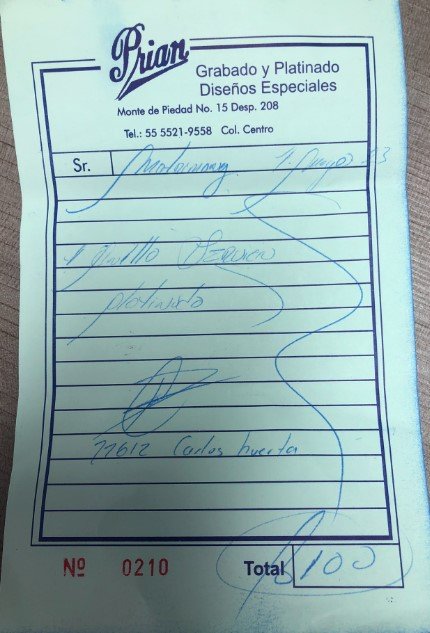 Prian
Grabado y Platinado
Diseños Especiales
Monte de Piedad No. 15 Desp. 208
Tel.: 55 5521-9558 Col. Centro
Sr.
1 Anillo
platinarlo
77612 Carlos huerta
Nº 0210
Total $100